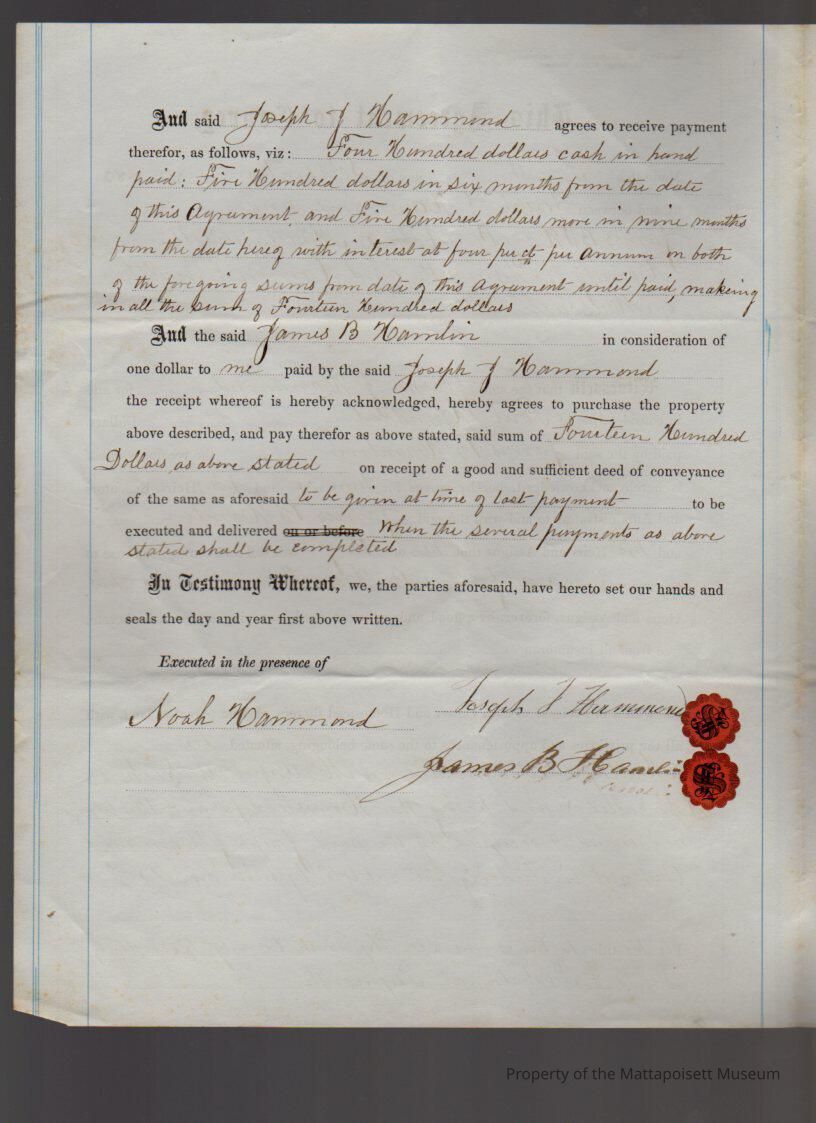 And said Joseph J Hammond agrees to receive payment
therefor, as follows, viz: Four Hundred dollars cash in hand
paid: Five Hundred dollars in six months from the date
of this Agreement, and Five Hundred dollars more in nine months
from the date hereof with interest at four per ct per annum on both
of the foregoing sums from date of this agreement until paid, makeing
in all the sum of Fourteen Hundred dollars
And the said James B Hamlin in consideration of
one dollar to me paid by the said Joseph J Hammond
the receipt whereof is hereby acknowledged, hereby agrees to purchase the property
above described, and pay therefor as above stated, said sum of Fourteen Hundred
Dollars as above stated on receipt of a good and sufficient deed of conveyance
of the same as aforesaid to be given at time of last payment to be
executed and delivered on or before When the several payments as above
stated shall be completed
In Testimony Whereof, we, the parties aforesaid, have hereto set our hands and
seals the day and year first above written.
Executed in the presence of
Noah Hammond Joseph J Hammond
James B Hamlin
Property of the Mattapoisett Museum